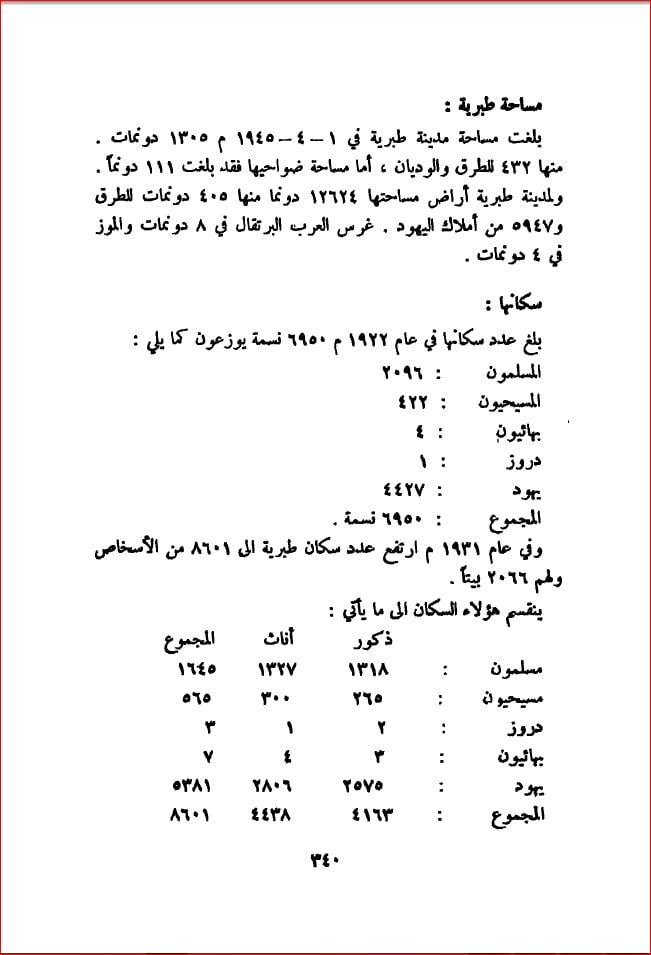 مساحة طبرية :
بلغت مساحة مدينة طبرية في ١ – ٤ – ١٩٤٥ م ١٣٠٥ دونمات .
منها ٤٣٢ للطرق والوديان ، أما مساحة ضواحيها فقد بلغت ١١١ دونماً .
ولمدينة طبرية أراض مساحتها ١٢٦٢٤ دونما منها ٤٠٥ دونمات للطرق
و٥٩٤٧ من أملاك اليهود . غرس العرب البرتقال في ٨ دونمات والموز
في ٤ دونمات .
سكانها :
بلغ عدد سكانها في عام ١٩٢٢ م ٦٩٥٠ نسمة يوزعون كما يلي :
المسلمون : ٢٠٩٦
المسيحيون : ٤٢٢
بهائيون : ٤
دروز : ١
يهود : ٤٤٢٧
المجموع : ٦٩٥٠ نسمة .
وفي عام ١٩٣١ م ارتفع عدد سكان طبرية الى ٨٦٠١ من الأسخاص
ولهم ٢٠٦٦ بيتاً .
ينقسم هؤلاء السكان الى ما يأتي :
ذكور أناث المجموع
مسلمون : ١٣١٨ ١٣٢٧ ١٦٤٥
مسيحيون : ٢٦٥ ٣٠٠ ٥٦٥
دروز : ٢ ١ ٣
بهائيون : ٣ ٤ ٧
يهود : ٢٥٧٥ ٢٨٠٦ ٥٣٨١
المجموع : ٤١٦٣ ٤٤٣٨ ٨٦٠١
٣٤٠